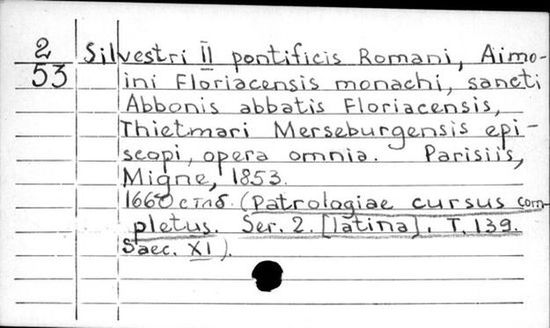 2 Silvestri II pontificis Romani, Aimo-
53 ini Floriacensis monachi, sancti
Abbonis abbatis Floriacensis,
Thietmari Merseburgensis epi-
scopi, opera omnia. Parisiis,
Migne, 1853.
1660 стлб. (Patrologiae cursus com-
pletus. Ser. 2. [latina]. T. 139.
Saec. XI).